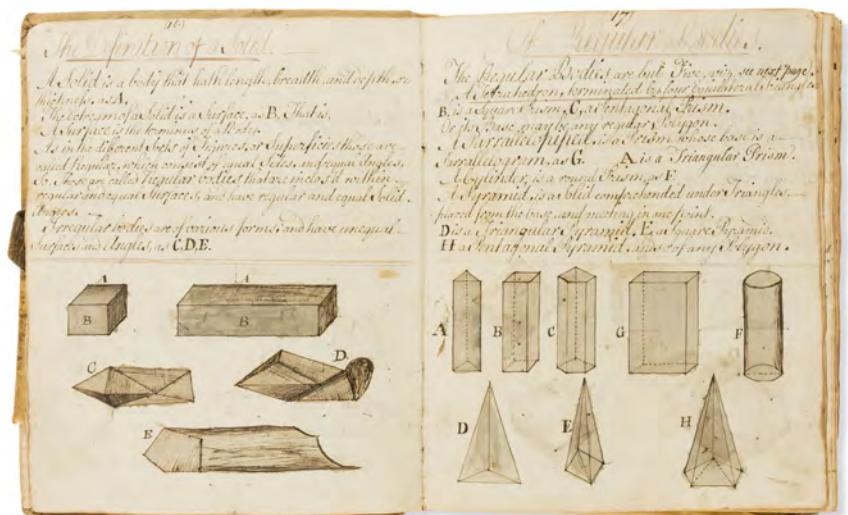 (16)
The Definition of a Solid.
A Solid is a body that hath length, breadth, and depth, or
thickness, as A.
The extream of a Solid is a Surface, as B. That is,
A Surface is the terminus of a Body.
As in the different Sorts of Figures, or Superficies those are
called Regular, which consist of equal Sides, and equal Angles,
So those are called Regular bodies that are inclos'd within
regular and equal Surfaces, and have regular and equal Solid
Angles.
Irregular bodies are of various forms, and have unequal
Surfaces and Angles, as C, D, E.
A A
B B
C D.
E
17)
Of Regular Bodies.
The Regular Bodies are but Five, viz, see next page).
A Tetrahedron, terminated by four Equilateral Triangles
B, is a Square Prism, C, a Pentagonal Prism.
Or its Base may be any regular Polygon.
A Parrallelopipid, is a Prism whose base is a
Parrallelogram, as G. A is a Triangular Prism.
A Cylinder, is a round Prism, as F
A Pyramid, is a Solid comprehended under Triangles,
placed from the base, and meeting in one point.
D is a Triangular Pyramid, E a Square Pyramid.
H a Pentagonal Pyramid, and so of any Polygon.
A B C G F
D E H